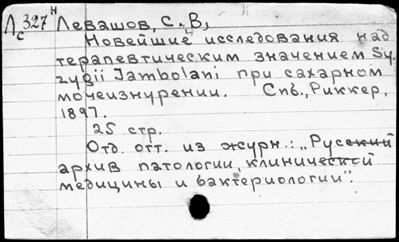 Лс 327 н Левашов, С. В,
Новейшие исследования над
терапевтическим значением Sy-
zygii Jambolani при сахарном
мочеизнурении. Спб., Риккер,
1897.
25 стр.
Отд. отт. из журн.: "Русский
архив патологии, клинической
медицины и бактериологии".